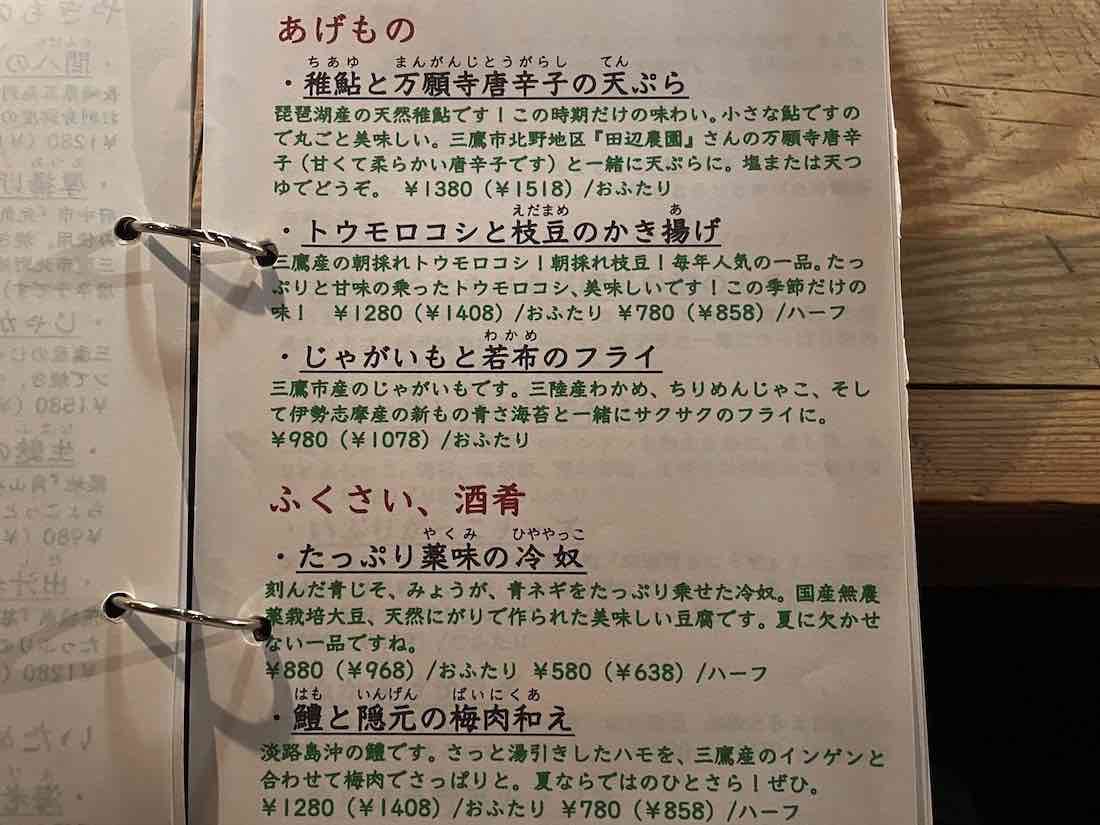 あげもの
ちあゆ まんがんじとうがらし てん
・稚鮎と万願寺唐辛子の天ぷら
琵琶湖産の天然稚鮎です！この時期だけの味わい。小さな鮎ですの
で丸ごと美味しい。三鷹市北野地区『田辺農園』さんの万願寺唐辛
子（甘くて柔らかい唐辛子です）と一緒に天ぷらに。塩または天つ
ゆでどうぞ。 ¥1380（¥1518）/おふたり
えだまめ あ
・トウモロコシと枝豆のかき揚げ
三鷹産の朝採れトウモロコシ！朝採れ枝豆！毎年人気の一品。たっ
ぷりと甘味の乗ったトウモロコシ、美味しいです！この季節だけの
味！ ¥1280（¥1408）/おふたり ¥780（¥858）/ハーフ
わかめ
・じゃがいもと若布のフライ
三鷹市産のじゃがいもです。三陸産わかめ、ちりめんじゃこ、そし
て伊勢志摩産の新もの青さ海苔と一緒にサクサクのフライに。
¥980（¥1078）/おふたり
ふくさい、酒肴
やくみ ひややっこ
・たっぷり薬味の冷奴
刻んだ青じそ、みょうが、青ネギをたっぷり乗せた冷奴。国産無農
薬栽培大豆、天然にがりで作られた美味しい豆腐です。夏に欠かせ
ない一品ですね。
¥880（¥968）/おふたり ¥580（¥638）/ハーフ
はも いんげん ばいにくあ
・鱧と隠元の梅肉和え
淡路島沖の鱧です。さっと湯引きしたハモを、三鷹産のインゲンと
合わせて梅肉でさっぱりと。夏ならではのひとさら！ぜひ。
¥1280（¥1408）/おふたり ¥780（¥858）/ハーフ